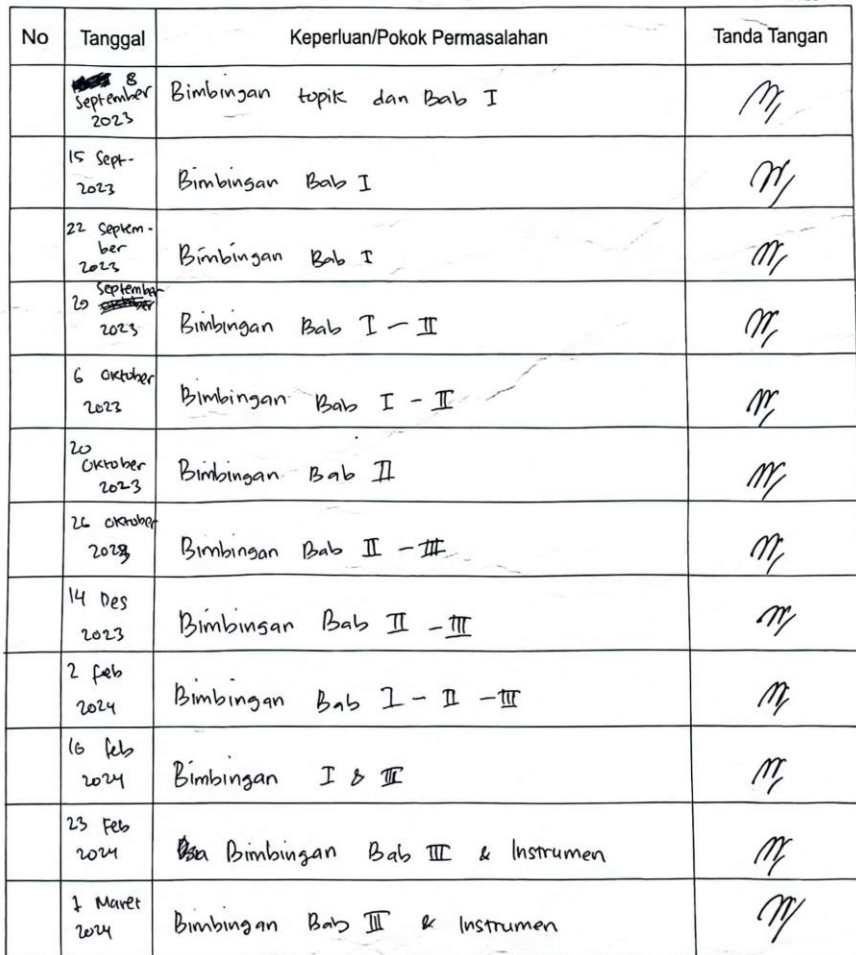 No Tanggal Keperluan/Pokok Permasalahan Tanda Tangan
8
September
2023
Bimbingan topik dan Bab I
15 Sept-
2023
Bimbingan Bab I
22 Septem-
ber
2023
Bimbingan Bab I
September
29
2023
Bimbingan Bab I - II
6 Oktober
2023
Bimbingan Bab I - II
20
Oktober
2023
Bimbingan Bab II
26 Oktober
2023
Bimbingan Bab II - III
14 Des
2023
Bimbingan Bab II - III
2 feb
2024
Bimbingan Bab I - II - III
16 feb
2024
Bimbingan I & III
23 Feb
2024
Bimbingan Bab III & Instrumen
1 Maret
2024
Bimbingan Bab III & Instrumen